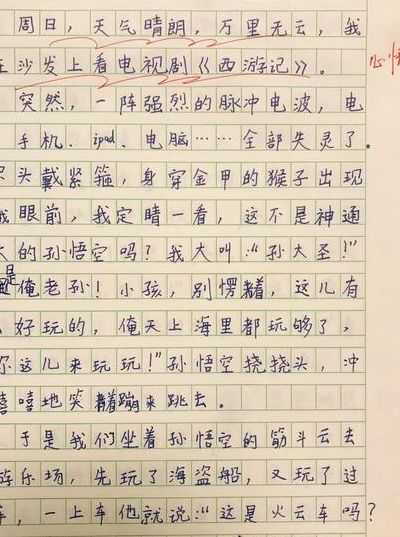 周日，天气晴朗，万里无云，我
沙发上看电视剧《西游记》。
突然，一阵强烈的脉冲电波，电
手机、ipad、电脑……全部失灵了。
头戴紧箍，身穿金甲的猴子出现
眼前，我定晴一看，这不是神通
的孙悟空吗？我大叫：“孙大圣！”
是俺老孙！小孩，别愣着，这儿有
好玩的，俺天上海里都玩够了，
你这儿来玩玩！”孙悟空挠挠头，冲
嘻地笑着蹦来跳去。
于是我们坐着孙悟空的筋斗云去
游乐场，先玩了海盗船，又玩了过
，一上车他就说：“这是火云车吗？